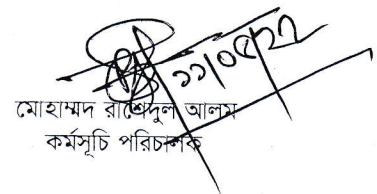 ১১/০৫/২২
মোহাম্মদ রাশেদুল আলম
কর্মসূচি পরিচালক